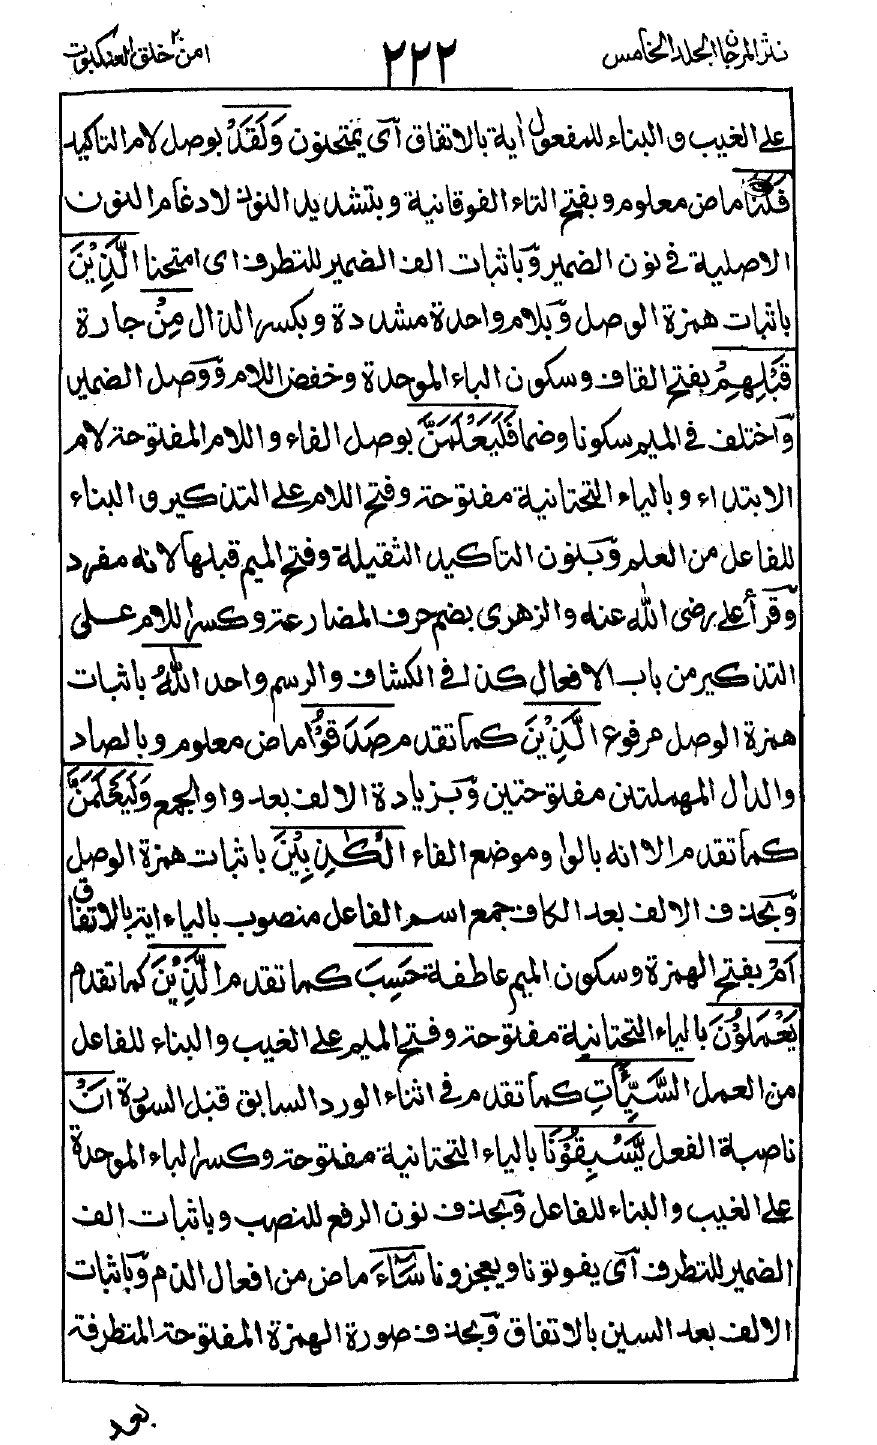 نثر المرجان الجلد الخامس
٢٢٢
امن خلق ٢٠ العنكبوت
على الغيب و البناء للمفعول اٰية بالاتفاق اَى يمتحنون وَلَقَدْ بوصل لام التاكيد
فَتَنَّا ماض معلوم و بفتح التاء الفوقانية و بتشديد النون لادغام النون
الاصلية فى نون الضمير وَباثبات الف الضمير للتطرف اى امتحنا الَّذِيْنَ
باثبات همزة الوصل وَبلام واحدة مشددة و بكسر الذال مِنْ جارة
قَبْلِهِمْ بفتح القاف و سكون الباء الموحدة و خفض اللام وَوصل الضمير
وَاختلف فى الميم سكونا و ضما فَلَيَعْلَمَنَّ بوصل الفاء و اللام المفتوحة لام
الابتداء و بالياء التحتانية مفتوحة و فتح اللام على التذكير و البناء
للفاعل من العلم وَبنون التاكيد الثقيلة و فتح الميم قبلها لانه مفرد
وَقرأ على رضى الله عنه و الزهرى بضم حرف المضارعة و كسر اللام على
التذكير من باب الافعال كذا فى الكشاف و الرسم واحد اللّٰهُ باثبات
همزة الوصل مرفوع الَّذِيْنَ كما تقدم صَدَقُوْا ماض معلوم و بالصاد
و الدال المهملتين مفتوحتين وَبزيادة الالف بعد واو الجمع وَلَيَعْلَمَنَّ
كما تقدم الا انه بالواو موضع الفاء الْكٰذِبِيْنَ باثبات همزة الوصل
وَبحذف الالف بعد الكاف جمع اسم الفاعل منصوب بالياء اية بالاتفاق
اَمْ بفتح الهمزة و سكون الميم عاطفة حَسِبَ كما تقدم الَّذِيْنَ كما تقدم
يَعْمَلُوْنَ بالياء التحتانية مفتوحة و فتح الميم على الغيب و البناء للفاعل
من العمل السَّيِّاٰتِ كما تقدم فى اثناء الورد السابق قبل السورة اَنْ
ناصبة الفعل يَّسْبِقُوْنَا بالياء التحتانية مفتوحة و كسر الباء الموحدة
على الغيب و البناء للفاعل وَبحذف نون الرفع للنصب و باثبات الف
الضمير للتطرف اَى يفوتونا و يعجزونا سَآءَ ماض من افعال الذم وَباثبات
الالف بعد السين بالاتفاق وَبحذف صورة الهمزة المفتوحة المتطرفة
بعد